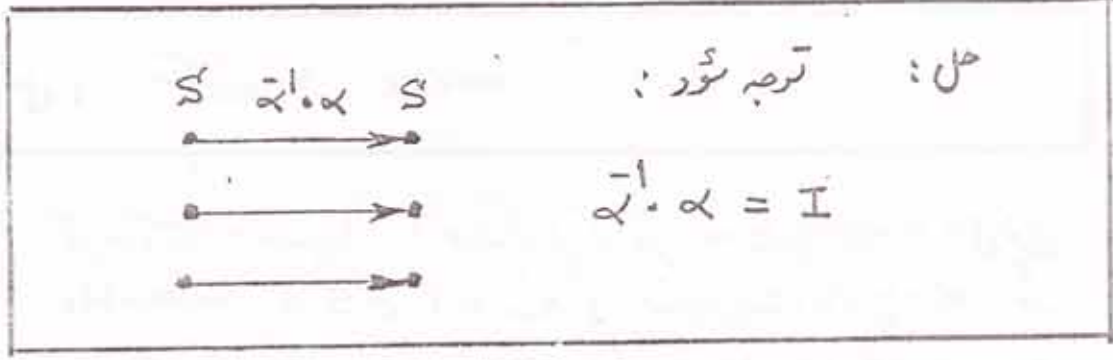 حل: توجه شود:
S α⁻¹∘α S
α⁻¹∘α = I